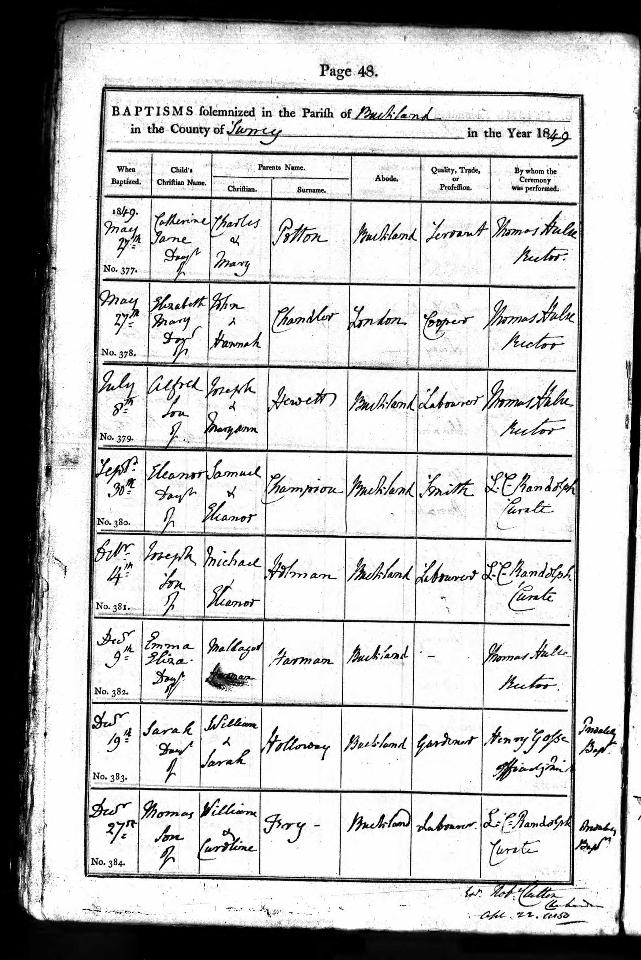 Page 48.
BAPTISMS solemnized in the Parish of Buckland
in the County of Surrey in the Year 1849
When Baptized. Child's Christian Name. Parents Name. Christian. Surname. Abode. Quality, Trade, or Profession. By whom the Ceremony was performed.
1849. Catherine Charles
May Jane & Potton Buckland Servant Thomas Hulse
27th Daugr of Mary Rector.
No. 377.
May Elizabeth John
27th Mary & Chandler London Cooper Thomas Hulse
Daugr of Hannah Rector
No. 378.
July Alfred Joseph
8th Son & Hewett Buckland Labourer Thomas Hulse
of Maryann Rector
No. 379.
Septr Eleanor Samuel
30th Daugr & Champion Buckland Smith L. C. Randolph
of Eleanor Curate
No. 380.
Joseph Michael
4th Son & Holman Buckland Labourer L. C. Randolph
of Eleanor Curate
No. 381.
Decr Emma
9th Eliza Harman Buckland - Thomas Hulse
Daugr Rector.
No. 382.
Decr Sarah William
19th Daugr & Holloway Buckland Gardener Henry Gosse
of Sarah
No. 383.
Decr Thomas William
27th Son & Fry - Buckland Labourer L. C. Randolph
of Caroline Curate
No. 384.
Apl. 22. 1850